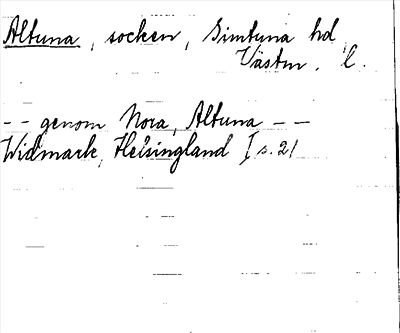 Altuna, socken, Simtuna hd
Västm. l.
-- genom Nora, Altuna --
Widmark, Helsingland I s. 21